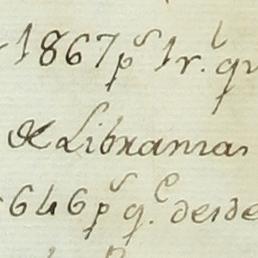 1867 p.s 1 r.l qu
de Libranzas
646 p.s q.e desde